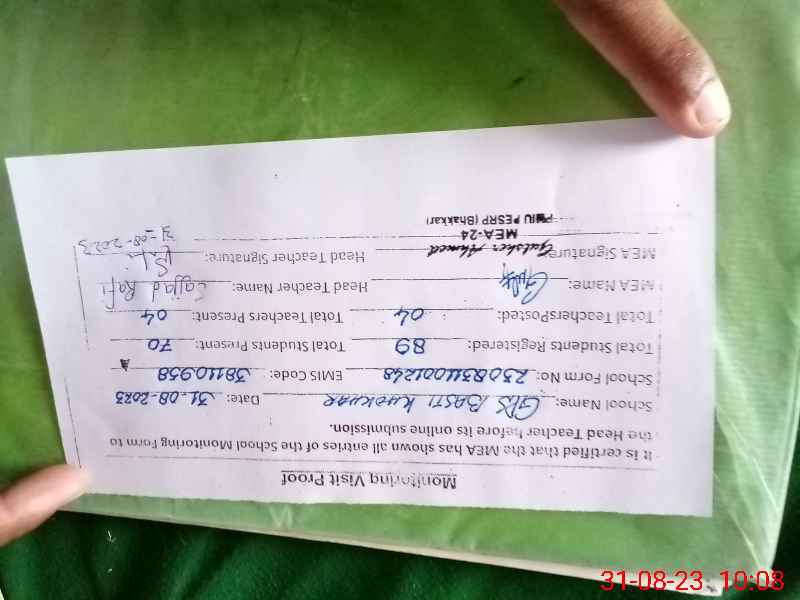 Monitoring Visit Proof
It is certified that the MEA has shown all entries of the School Monitoring Form to
the Head Teacher before its online submission.
School Name: GPS BASTI KHOKHAR Date: 31-08-2023
School Form No: 230831001248 EMIS Code: 38110958
Total Students Registered: 89 Total Students Present: 70
Total TeachersPosted: 04 Total Teachers Present: 04
MEA Name: Head Teacher Name: Sajjad Rafi
MEA Signature: Gulsher Ahmed Head Teacher Signature:
MEA-24 31-08-2023
PMIU PESRP (Bhakkar)
31-08-23 10:08